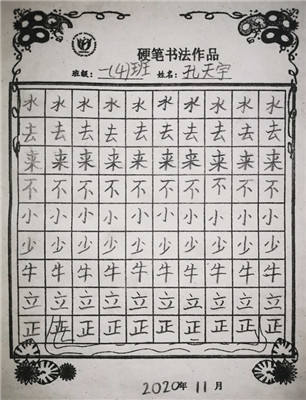 硬笔书法作品
班级：一(4)班 姓名：孔天宇
水 水 水 水 水 水 水 水 水 水
去 去 去 去 去 去 去 去 去 去
来 来 来 来 来 来 来 来 来 来
不 不 不 不 不 不 不 不 不 不
小 小 小 小 小 小 小 小 小 小
少 少 少 少 少 少 少 少 少 少
牛 牛 牛 牛 牛 牛 牛 牛 牛 牛
立 立 立 立 立 立 立 立 立 立
正 正 正 正 正 正 正 正 正 正
2020年11月